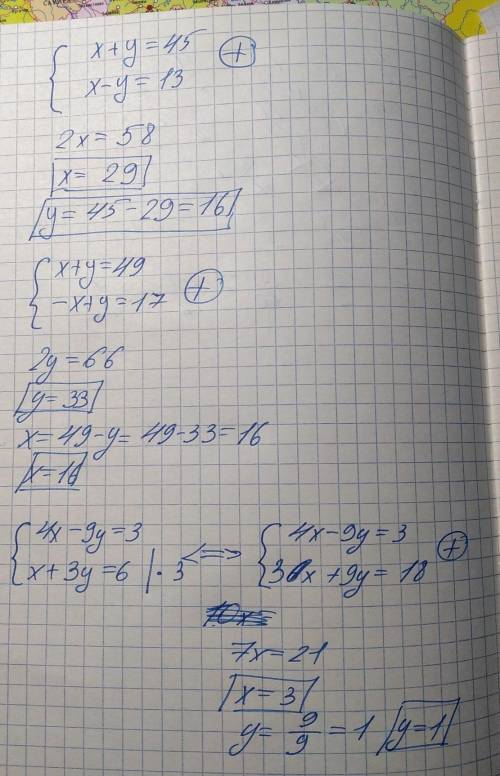 { x+y=45 (+)
x-y=13
2x=58
x= 29
y=45-29=16
{ x+y=49
-x+y=17 (+)
2y=66
y=33
x=49-y=49-33=16
x=16
{ 4x-9y=3 <=> { 4x-9y=3 (+)
x+3y=6 |·3 3x+9y=18
7x=21
x=3
y=9/9=1 y=1